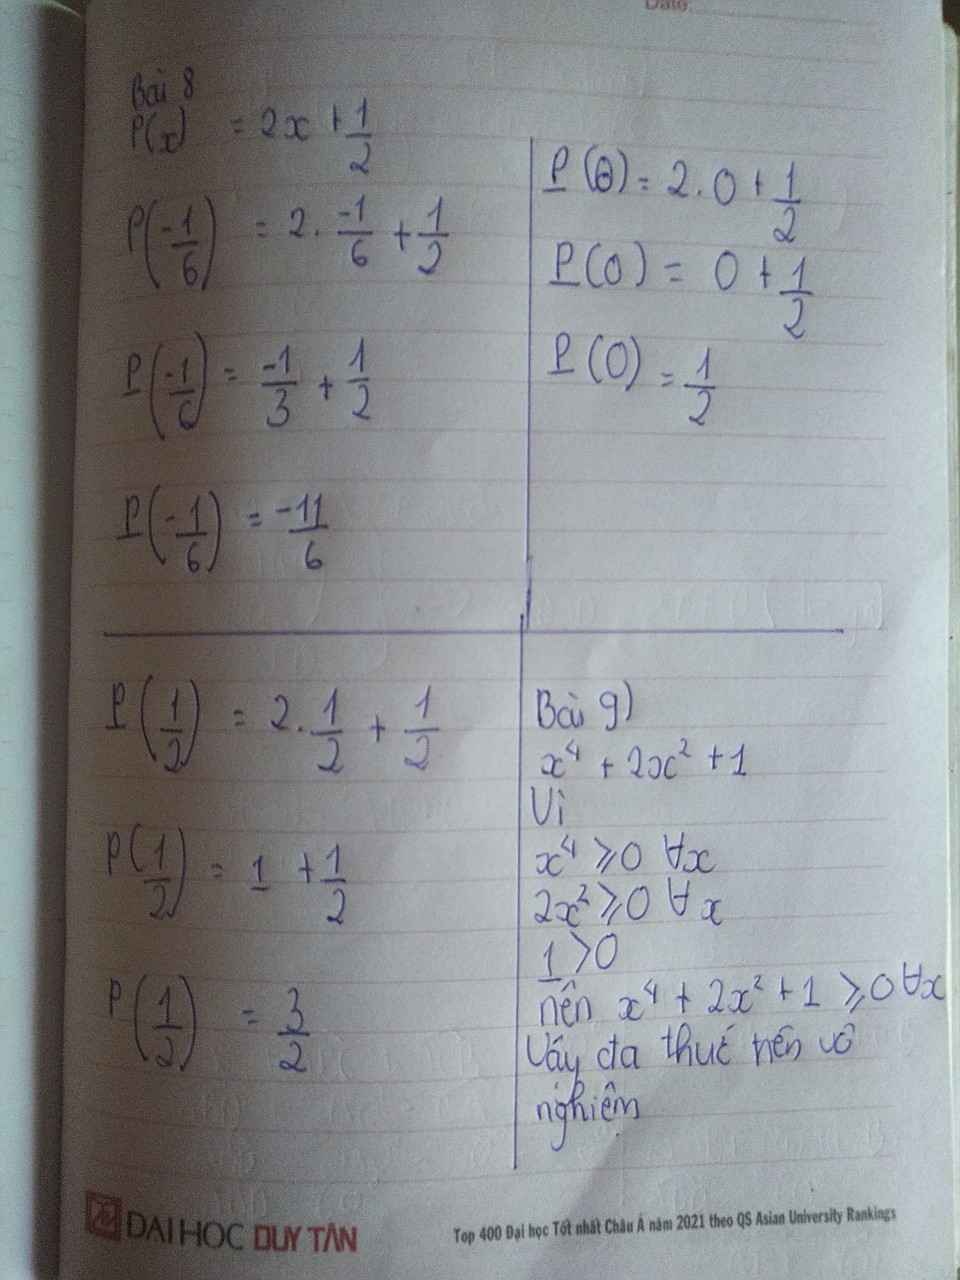 Date
Bài 8
P(x) = 2x + 1/2
P(-1/6) = 2 . -1/6 + 1/2
P(-1/6) = -1/3 + 1/2
P(-1/6) = -11/6
P(0) = 2.0 + 1/2
P(0) = 0 + 1/2
P(0) = 1/2
P(1/2) = 2.1/2 + 1/2
P(1/2) = 1 + 1/2
P(1/2) = 3/2
Bài 9)
x⁴ + 2x² + 1
Vì
x⁴ ⩾ 0 ∀x
2x² ⩾ 0 ∀x
1 > 0
nên x⁴ + 2x² + 1 ⩾ 0 ∀x
Vậy đa thức nên vô
nghiệm
ĐẠI HỌC DUY TÂN
Top 400 Đại học Tốt nhất Châu Á năm 2021 theo QS Asian University Rankings